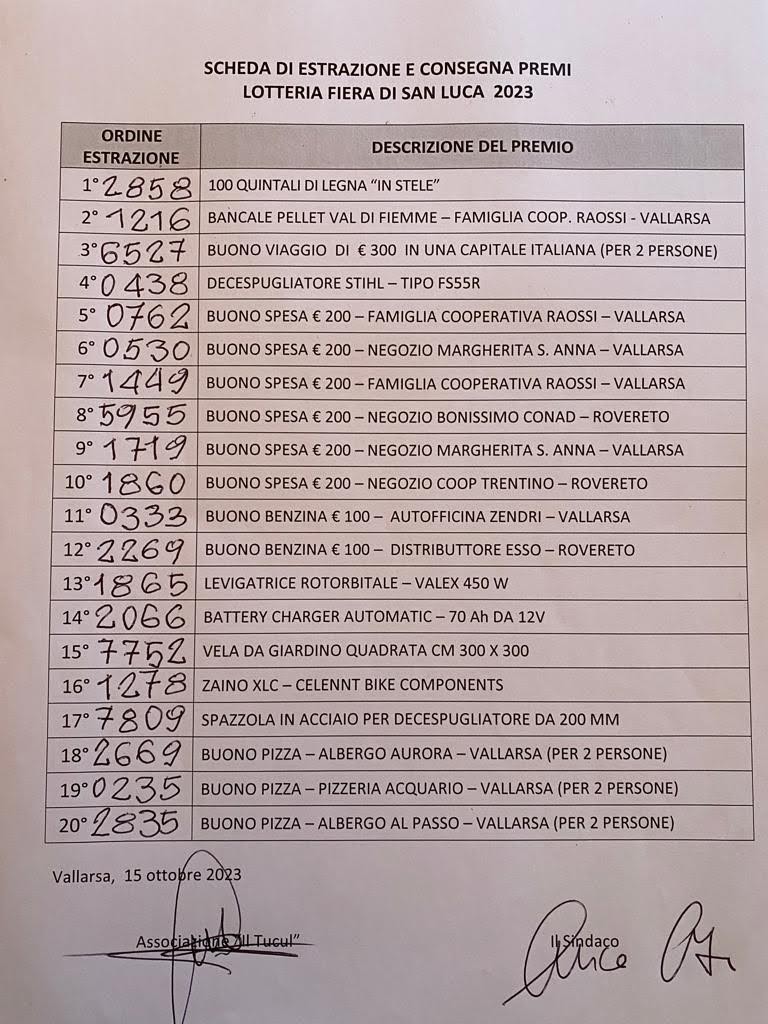 SCHEDA DI ESTRAZIONE E CONSEGNA PREMI
LOTTERIA FIERA DI SAN LUCA 2023
ORDINE ESTRAZIONE DESCRIZIONE DEL PREMIO
1° 2858 100 QUINTALI DI LEGNA “IN STELE”
2° 1216 BANCALE PELLET VAL DI FIEMME – FAMIGLIA COOP. RAOSSI - VALLARSA
3° 6527 BUONO VIAGGIO DI € 300 IN UNA CAPITALE ITALIANA (PER 2 PERSONE)
4° 0438 DECESPUGLIATORE STIHL – TIPO FS55R
5° 0762 BUONO SPESA € 200 – FAMIGLIA COOPERATIVA RAOSSI – VALLARSA
6° 0530 BUONO SPESA € 200 – NEGOZIO MARGHERITA S. ANNA – VALLARSA
7° 1449 BUONO SPESA € 200 – FAMIGLIA COOPERATIVA RAOSSI – VALLARSA
8° 5955 BUONO SPESA € 200 – NEGOZIO BONISSIMO CONAD – ROVERETO
9° 1719 BUONO SPESA € 200 – NEGOZIO MARGHERITA S. ANNA – VALLARSA
10° 1860 BUONO SPESA € 200 – NEGOZIO COOP TRENTINO – ROVERETO
11° 0333 BUONO BENZINA € 100 – AUTOFFICINA ZENDRI – VALLARSA
12° 2269 BUONO BENZINA € 100 – DISTRIBUTTORE ESSO – ROVERETO
13° 1865 LEVIGATRICE ROTORBITALE – VALEX 450 W
14° 2066 BATTERY CHARGER AUTOMATIC – 70 Ah DA 12V
15° 7752 VELA DA GIARDINO QUADRATA CM 300 X 300
16° 1278 ZAINO XLC – CELENNT BIKE COMPONENTS
17° 7809 SPAZZOLA IN ACCIAIO PER DECESPUGLIATORE DA 200 MM
18° 2669 BUONO PIZZA – ALBERGO AURORA – VALLARSA (PER 2 PERSONE)
19° 0235 BUONO PIZZA – PIZZERIA ACQUARIO – VALLARSA (PER 2 PERSONE)
20° 2835 BUONO PIZZA – ALBERGO AL PASSO – VALLARSA (PER 2 PERSONE)
Vallarsa, 15 ottobre 2023
Associazione “Il Tucul” Il Sindaco